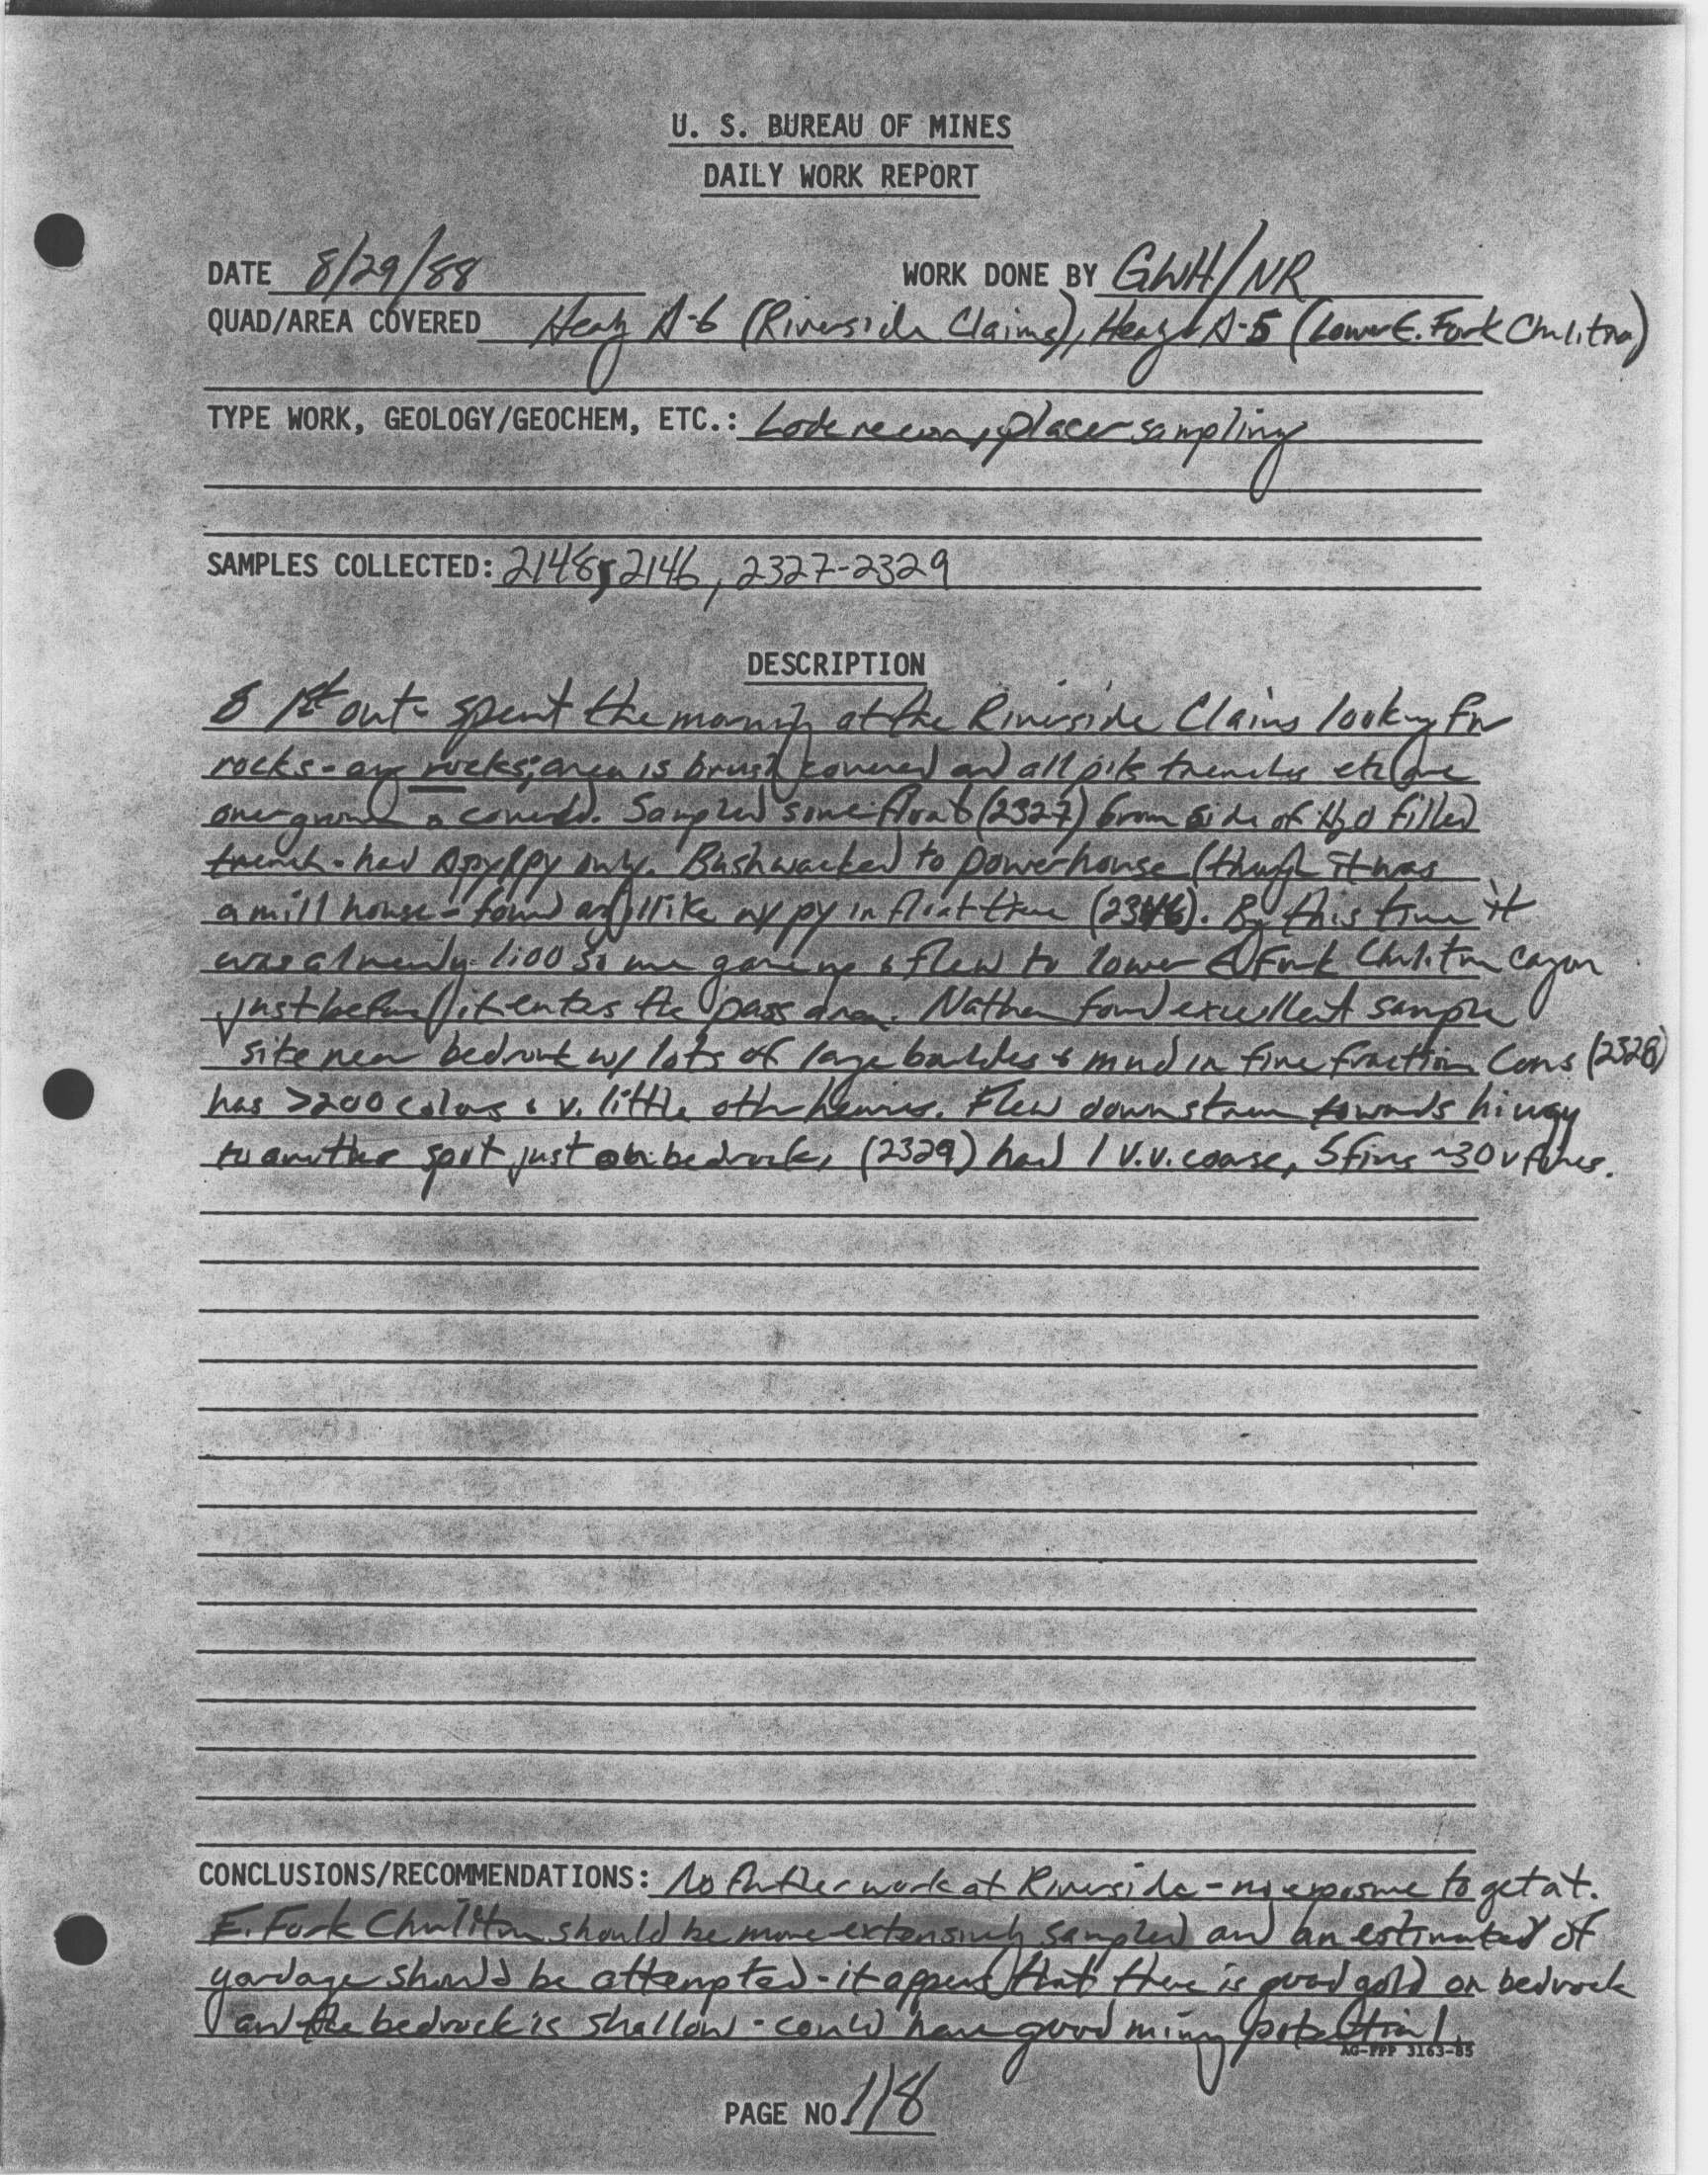 U. S. BUREAU OF MINES
DAILY WORK REPORT
DATE 8/29/88 WORK DONE BY GWH/NR
QUAD/AREA COVERED Healy A-6 (Riverside Claims), Healy A-5 (Lower E. Fork Chulitna)
TYPE WORK, GEOLOGY/GEOCHEM, ETC.: Lode recon, placer sampling
SAMPLES COLLECTED: 2148, 2146, 2327-2329
DESCRIPTION
1st out - spent the morning at the Riverside Claims looking for
rocks - any rocks; area is brush covered and all pits trenches etc are
overgrown & covered. Sampled some float (2327) from side of H2O filled
trench - had Apy & py only. Bushwacked to powerhouse (though it was
a mill house - found argillike w/ py in float there By this time it
was already 1:00 so we gave up & flew to lower E Fork Chulitna canyon
just before it enters the pass area. Nathan found excellent sample
site near bedrock w/ lots of large boulders & mud in fine fraction Cons (2328)
has >200 colors & v. little other heavies. Flew downstream towards hiway
to another spot just on bedrock, (2329) had 1 v.v. coarse, 5 fine ~30 v fines.
CONCLUSIONS/RECOMMENDATIONS: No further work at Riverside - no exposure to get at.
E. Fork Chulitna should be more extensively sampled and an estimated of
yardage should be attempted - it appears that there is good gold on bedrock
and the bedrock is shallow - could have good mining potential.
AG-FPP 3163-85
PAGE NO. 118